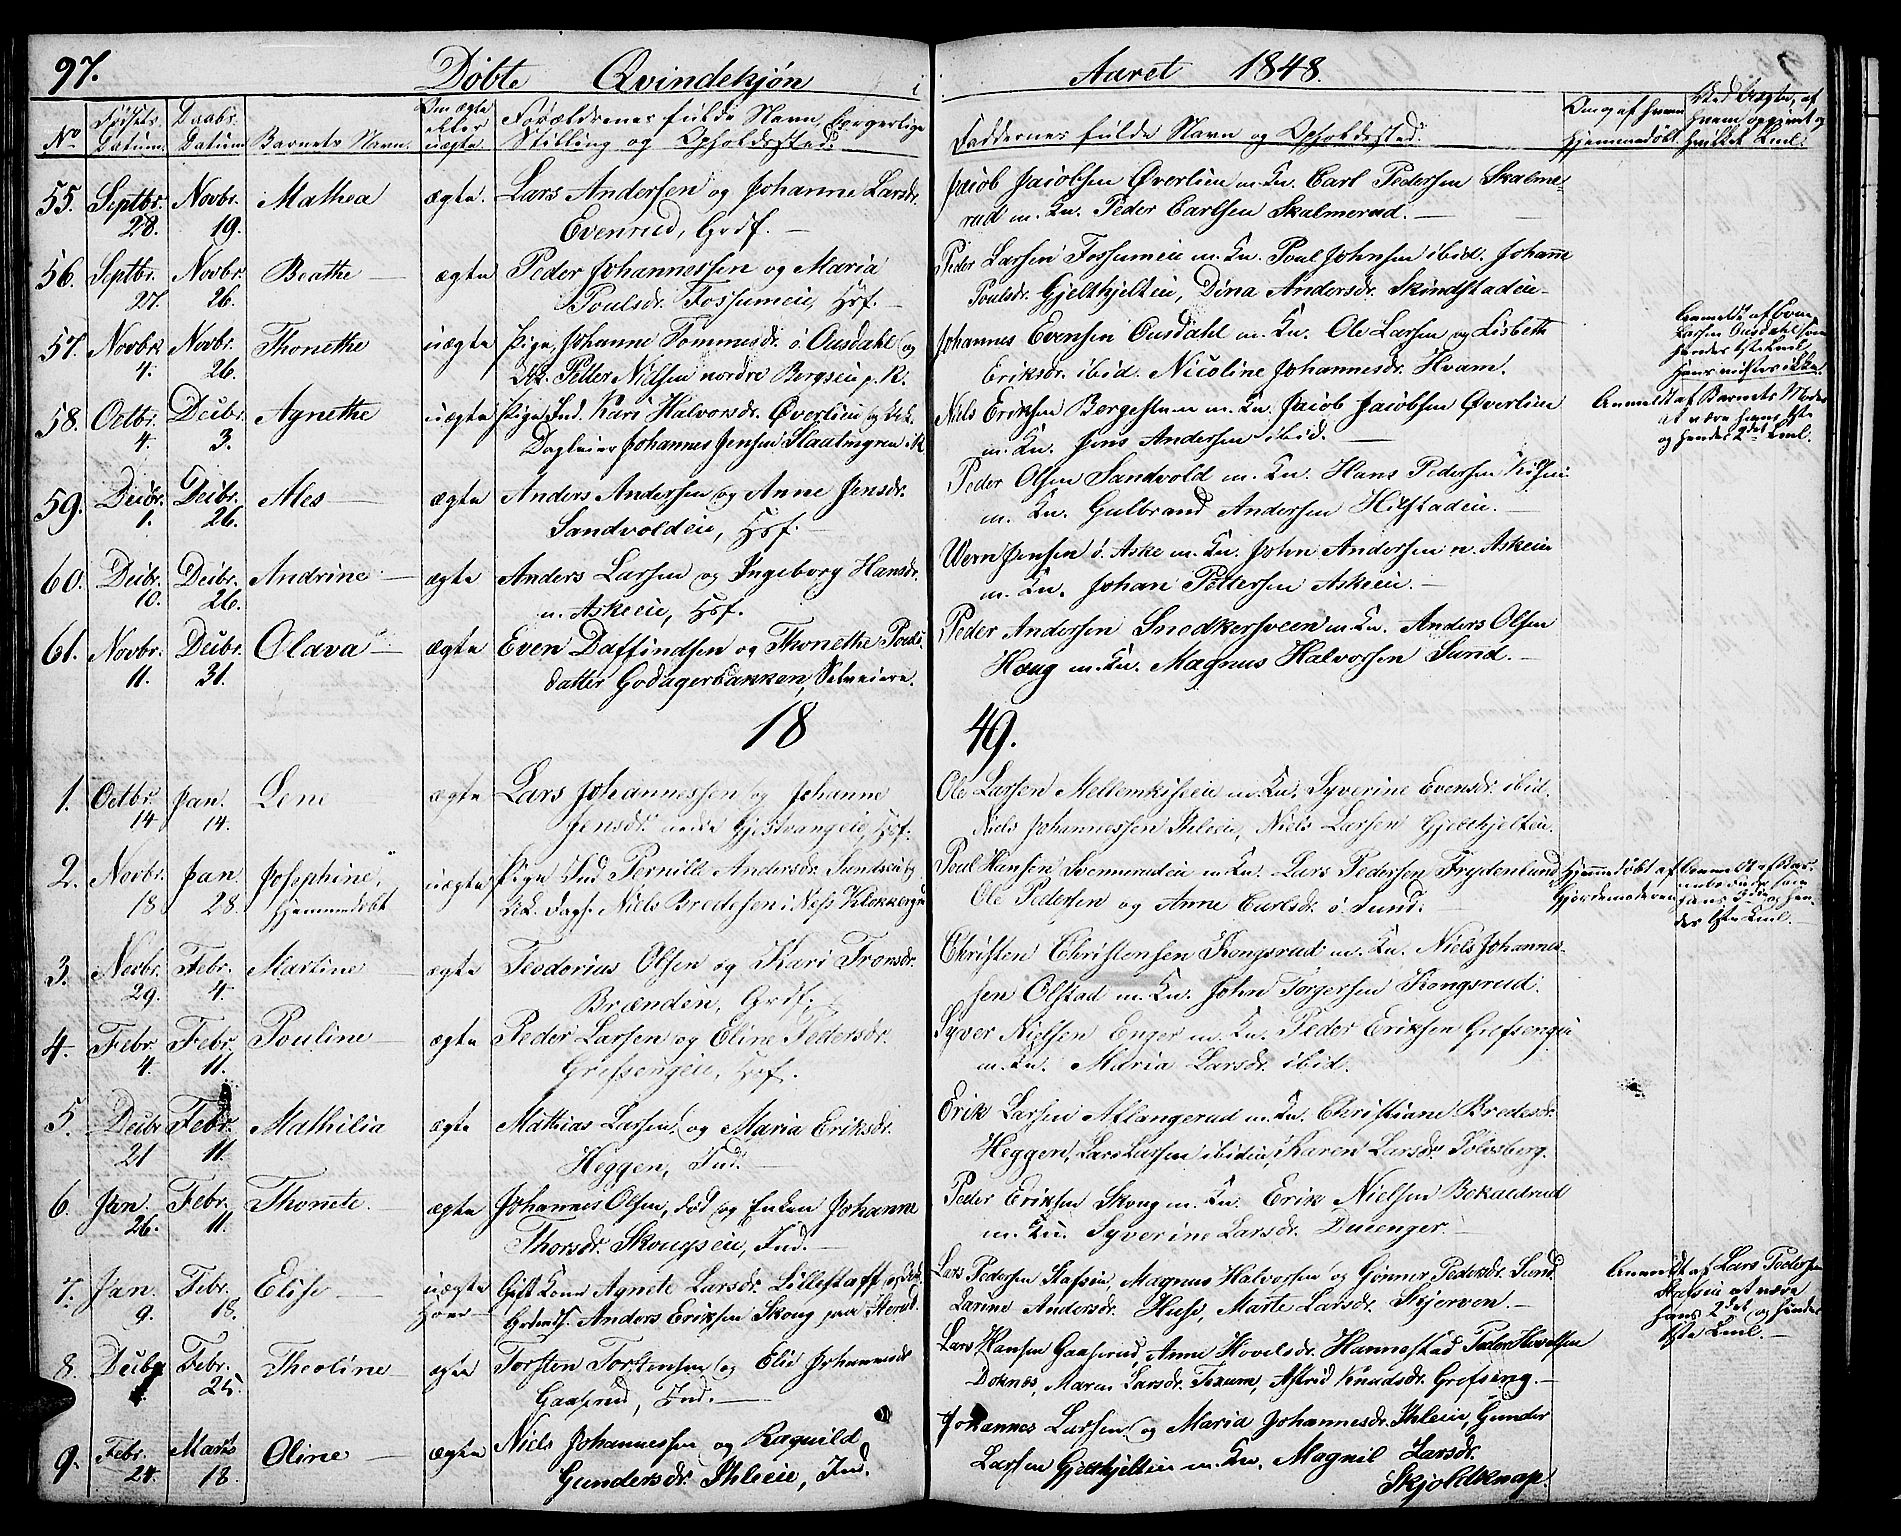 97. Döbte Qvindekjøn i Aaret 1848.
No Fødsels Datum. Daabs Datum Barnets Navn. Om ægte eller uægte Forældrenes fulde Navn, borgerlige Stilling og Opholdssted. Faddernes fulde Navn og Opholdssted. Om og af hvem hjemmedøbt.
55. Septbr. 28. Novbr. 19. Mathea ægte. Lars Andersen og Johanne Larsdr.
Evenrud, Grdf.
Jacob Jacobsen Øverlien m. Kn. Carl Pedersen Skalme-
rud m. Kn. Peder Carlsen Skalmerud.
56. Septbr. 27. Novbr. 26. Beathe ægte Peder Johannessen og Maria
Poulsdr. Fossumeie, Hsf.
Peder Larsen Fossumeie m. Kn. Poul Johnsen ibid. Johanne
Poulsdr. Gjelthjelteie, Dina Andersdr. Sköndstadeie
57. Novbr. 4. Novbr. 26. Thonethe uægte Pige Johanne Tommesdr. ö. Ousdahl og
Uk. Petter Nielsen nordre Bergseie p. R.
Johannes Evensen Ousdahl m. Kn. Ole Larsen og Lisbeth
Eriksdr. ibid. Nicoline Johannesdr. Hvam.
Anmeldt af Even
Larsen Ousdahl som
hendes 1ste Leiml.
hans vistes ikke.
58. Octbr. 4. Decbr. 3. Agnethe uægte Pige Ind. Kari Halvorsdr. Øverlien og Uk.
Dagleier Johannes Jensen
Niels Eriksen Bergestuen m. Kn. Jacob Jacobsen Øverlien
m. Kn. Jens Andersen ibid.
Anmeldt af Barnets Moder
at være hans 1ste
og hendes 2det Leiml.
59. Decbr. 1. Decbr. 26. Ales ægte Anders Andersen og Anne Jensdr.
Sandvoldeie, Hsf.
Peder Olsen Sandvold m. Kn. Hans Pedersen
m. Kn. Gulbrand Andersen Hilstadeie.
60. Decbr. 10. Decbr. 26. Andrine ægte Anders Larsen og Ingeborg Hansdr.
n. Askeeie, Hsf.
Wern Jensen ö. Aske m. Kn. John Andersen n. Askeeie
m. Kn. Johan Pettersen Askeeie.
61. Novbr. 11. Decbr. 31. Olava ægte Even Daffindsen og Thonethe Pouls-
datter Godagerbakken, Selveiere.
Peder Andersen Snedkersveen m. Kn. Anders Olsen
Houg m. Kn. Magnus Halvorsen Sund.
1849.
1. Octbr. 14 Jan. 14. Lene ægte Lars Johannessen og Johanne
Jensdr. nedre Gjestvangeie, Hsf.
Ole Larsen Mellemkiseeie m. Kn. Syverine Evensdr. ibid.
Niels Johannessen Ihleeie, Niels Larsen Gjelthjelteie.
2. Novbr. 18 Jan 28. Josephine, hjemmedöbt uægte Pige Ind Pernille Andersdr. Sundseie og
Uk. Dagl. Niels Bredesen i Næss
Poul Hansen Svennerudeie m. Kn. Lars Pedersen Frydenlund
Ole Pedersen og Anne Carlsdr. ö. Sund.
Hjemmedöbt af
Gjordemoderen
3. Novbr. 29. Febr. 4. Martine ægte Teodorius Olsen og Kari Tronsdr.
Brænden, Grdf.
Christen Christensen Kongsrud m. Kn. Niels Johannes-
sen Olstad m. Kn. John Torgersen Kongsrud.
4. Febr. 4. Febr. 11. Pouline ægte Peder Larsen og Eline Pedersdr.
Grefsengeie, Hsf.
Syver Nielsen Enger m. Kn. Peder Eriksen Grefsengeie
m. Kn. Maria Larsdr. ibid.
5. Decbr 21 Febr. 11. Mathilia ægte Mathias Larsen og Maria Eriksdr.
Heggen, Ind.
Erik Larsen Aflangerud m. Kn. Christiane Bredesdr.
Heggen, Lars Larsen ibideie, Karen Larsdr. Solosberg.
6. Jan. 26. Febr. 11. Thonete. ægte Johannes Olsen, död og Enken Johanne
Thorsdr. Skougseie, Ind.
Peder Eriksen Skoug m. Kn. Erik Nielsen Bekaldrud
m. Kn. Syverine Larsdr. Dueenger.
7. Jan. 9. Febr. 18. Elise uægte Hoer Gift Kone Agnete Larsdr. Lillestaff
Anders Eriksen Skoug
Lars Pedersen Stafseie, Magnus Halvorsen og Gunner Pedersdr. Sund
Larine Andersdr. Huse, Marte Larsdr. Skjerven.
Anmeldt af Lars Pedersen
Stafseie at være
hans 2det og hendes
1ste Leiml.
8. Decbr. 1. Febr. 25. Theoline ægte Torsten Torstensen og Elie Johannesdr
Gaaserud, Ind.
Lars Hansen Gaaserud, Anne Hovelsdr. Hannestad Peder Hovelsen
Doknæs, Maren Larsdr. Fexum, Astrid Knudsdr. Grefsing.
9. Febr. 24. Marts 18. Oline ægte Niels Johannessen og Ragnild
Gundersdr. Ihleeie, Ind.
Johannes Larsen og Maria Johannesdr. Ihleeie, Gunder
Larsen Gjelthjelteie m. Kn. Magnil Larsdr.
Skjoldknap.